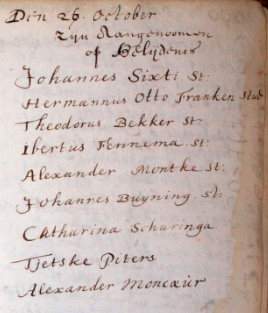 Den 26. October
zyn Aangenoomen
op Belijdenis
Johannes Sixti St:
Hermannus Otto Franken Stud
Theodorus Bekker St:
Ibertus Fennema St:
Alexander Montke St:
Johannes Buyning St:
Catharina Schuringa
Tjetske Piters
Alexander Moncœür